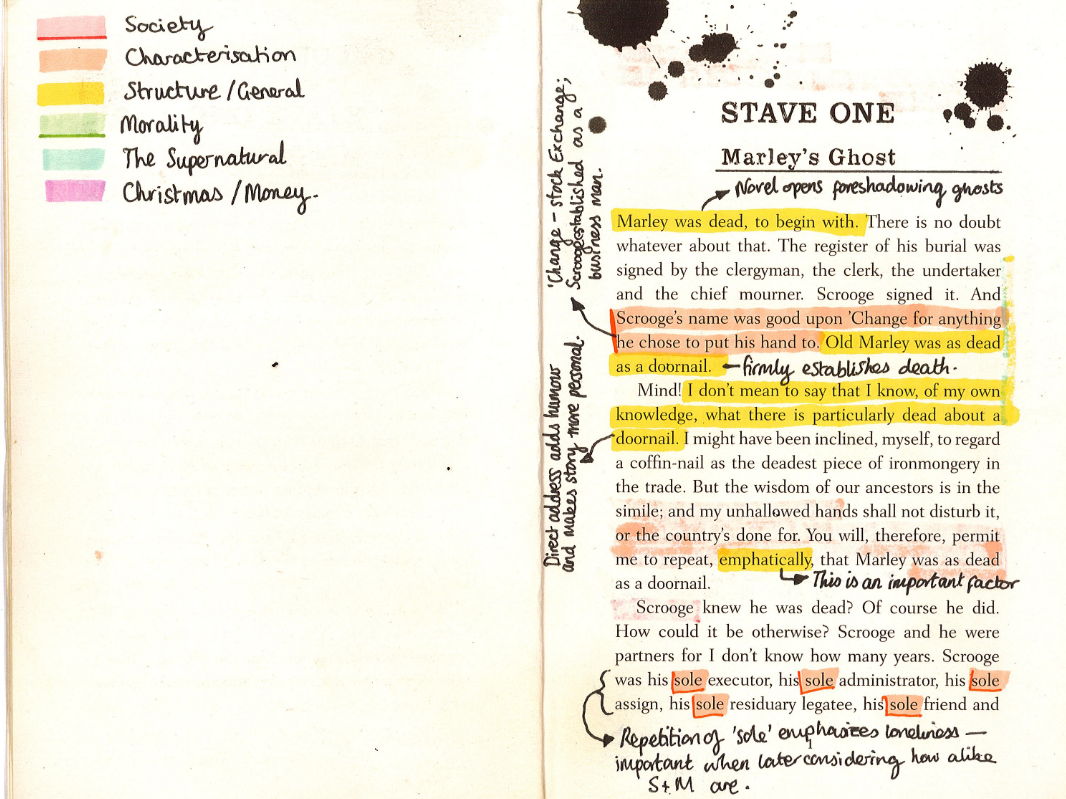 Society
Characterisation
Structure/General
Morality
The Supernatural
Christmas/Money.
'Change – stock Exchange;
Scrooge established as a
business man.
Direct address adds humour
and makes story more personal.
STAVE ONE
Marley's Ghost
Novel opens foreshadowing ghosts
Marley was dead, to begin with. There is no doubt
whatever about that. The register of his burial was
signed by the clergyman, the clerk, the undertaker
and the chief mourner. Scrooge signed it. And
Scrooge's name was good upon 'Change for anything
he chose to put his hand to. Old Marley was as dead
as a doornail. – firmly establishes death.
Mind! I don't mean to say that I know, of my own
knowledge, what there is particularly dead about a
doornail. I might have been inclined, myself, to regard
a coffin-nail as the deadest piece of ironmongery in
the trade. But the wisdom of our ancestors is in the
simile; and my unhallowed hands shall not disturb it,
or the country's done for. You will, therefore, permit
me to repeat, emphatically, that Marley was as dead
as a doornail.
This is an important factor
Scrooge knew he was dead? Of course he did.
How could it be otherwise? Scrooge and he were
partners for I don't know how many years. Scrooge
was his sole executor, his sole administrator, his sole
assign, his sole residuary legatee, his sole friend and
Repetition of 'sole' emphasizes loneliness –
important when later considering how alike
S+M are.